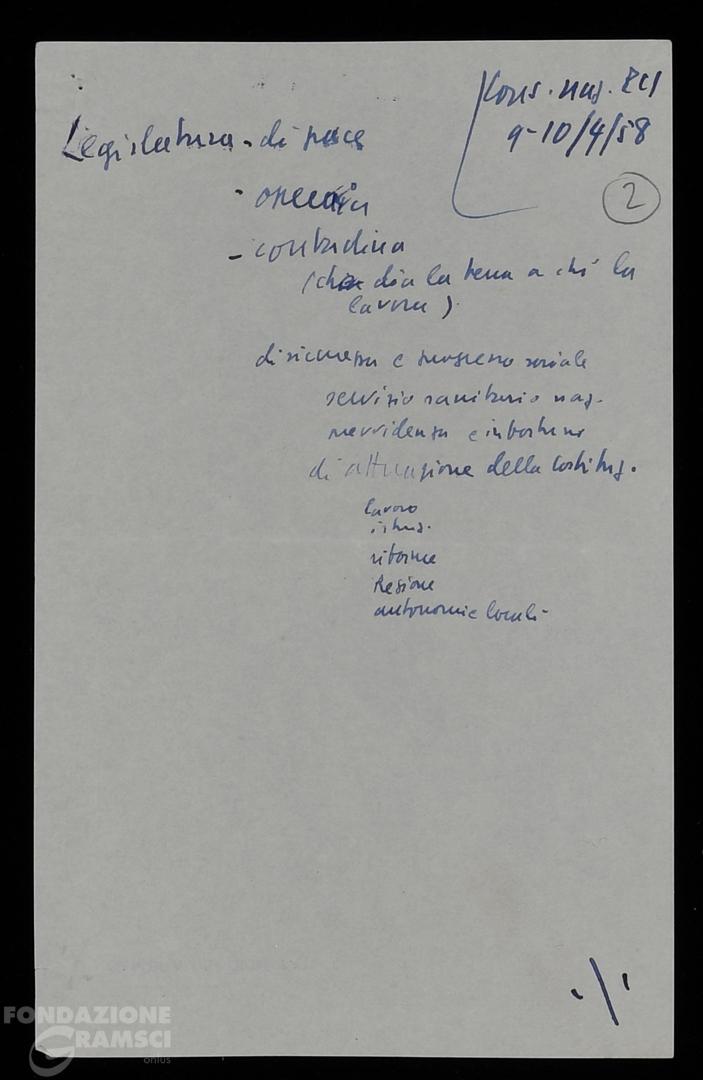 Cons. naz. PCI
9-10/4/58
2
Legislatura - di pace
- operaia
- contadina
(che dia la terra a chi la
lavora).
di sicurezza e progresso sociale
servizio sanitario naz.
previdenza e infortuni
di attuazione della Costituz.
lavoro
istruz.
riforme
Regione
autonomie locali -
./.
FONDAZIONE
GRAMSCI
onlus